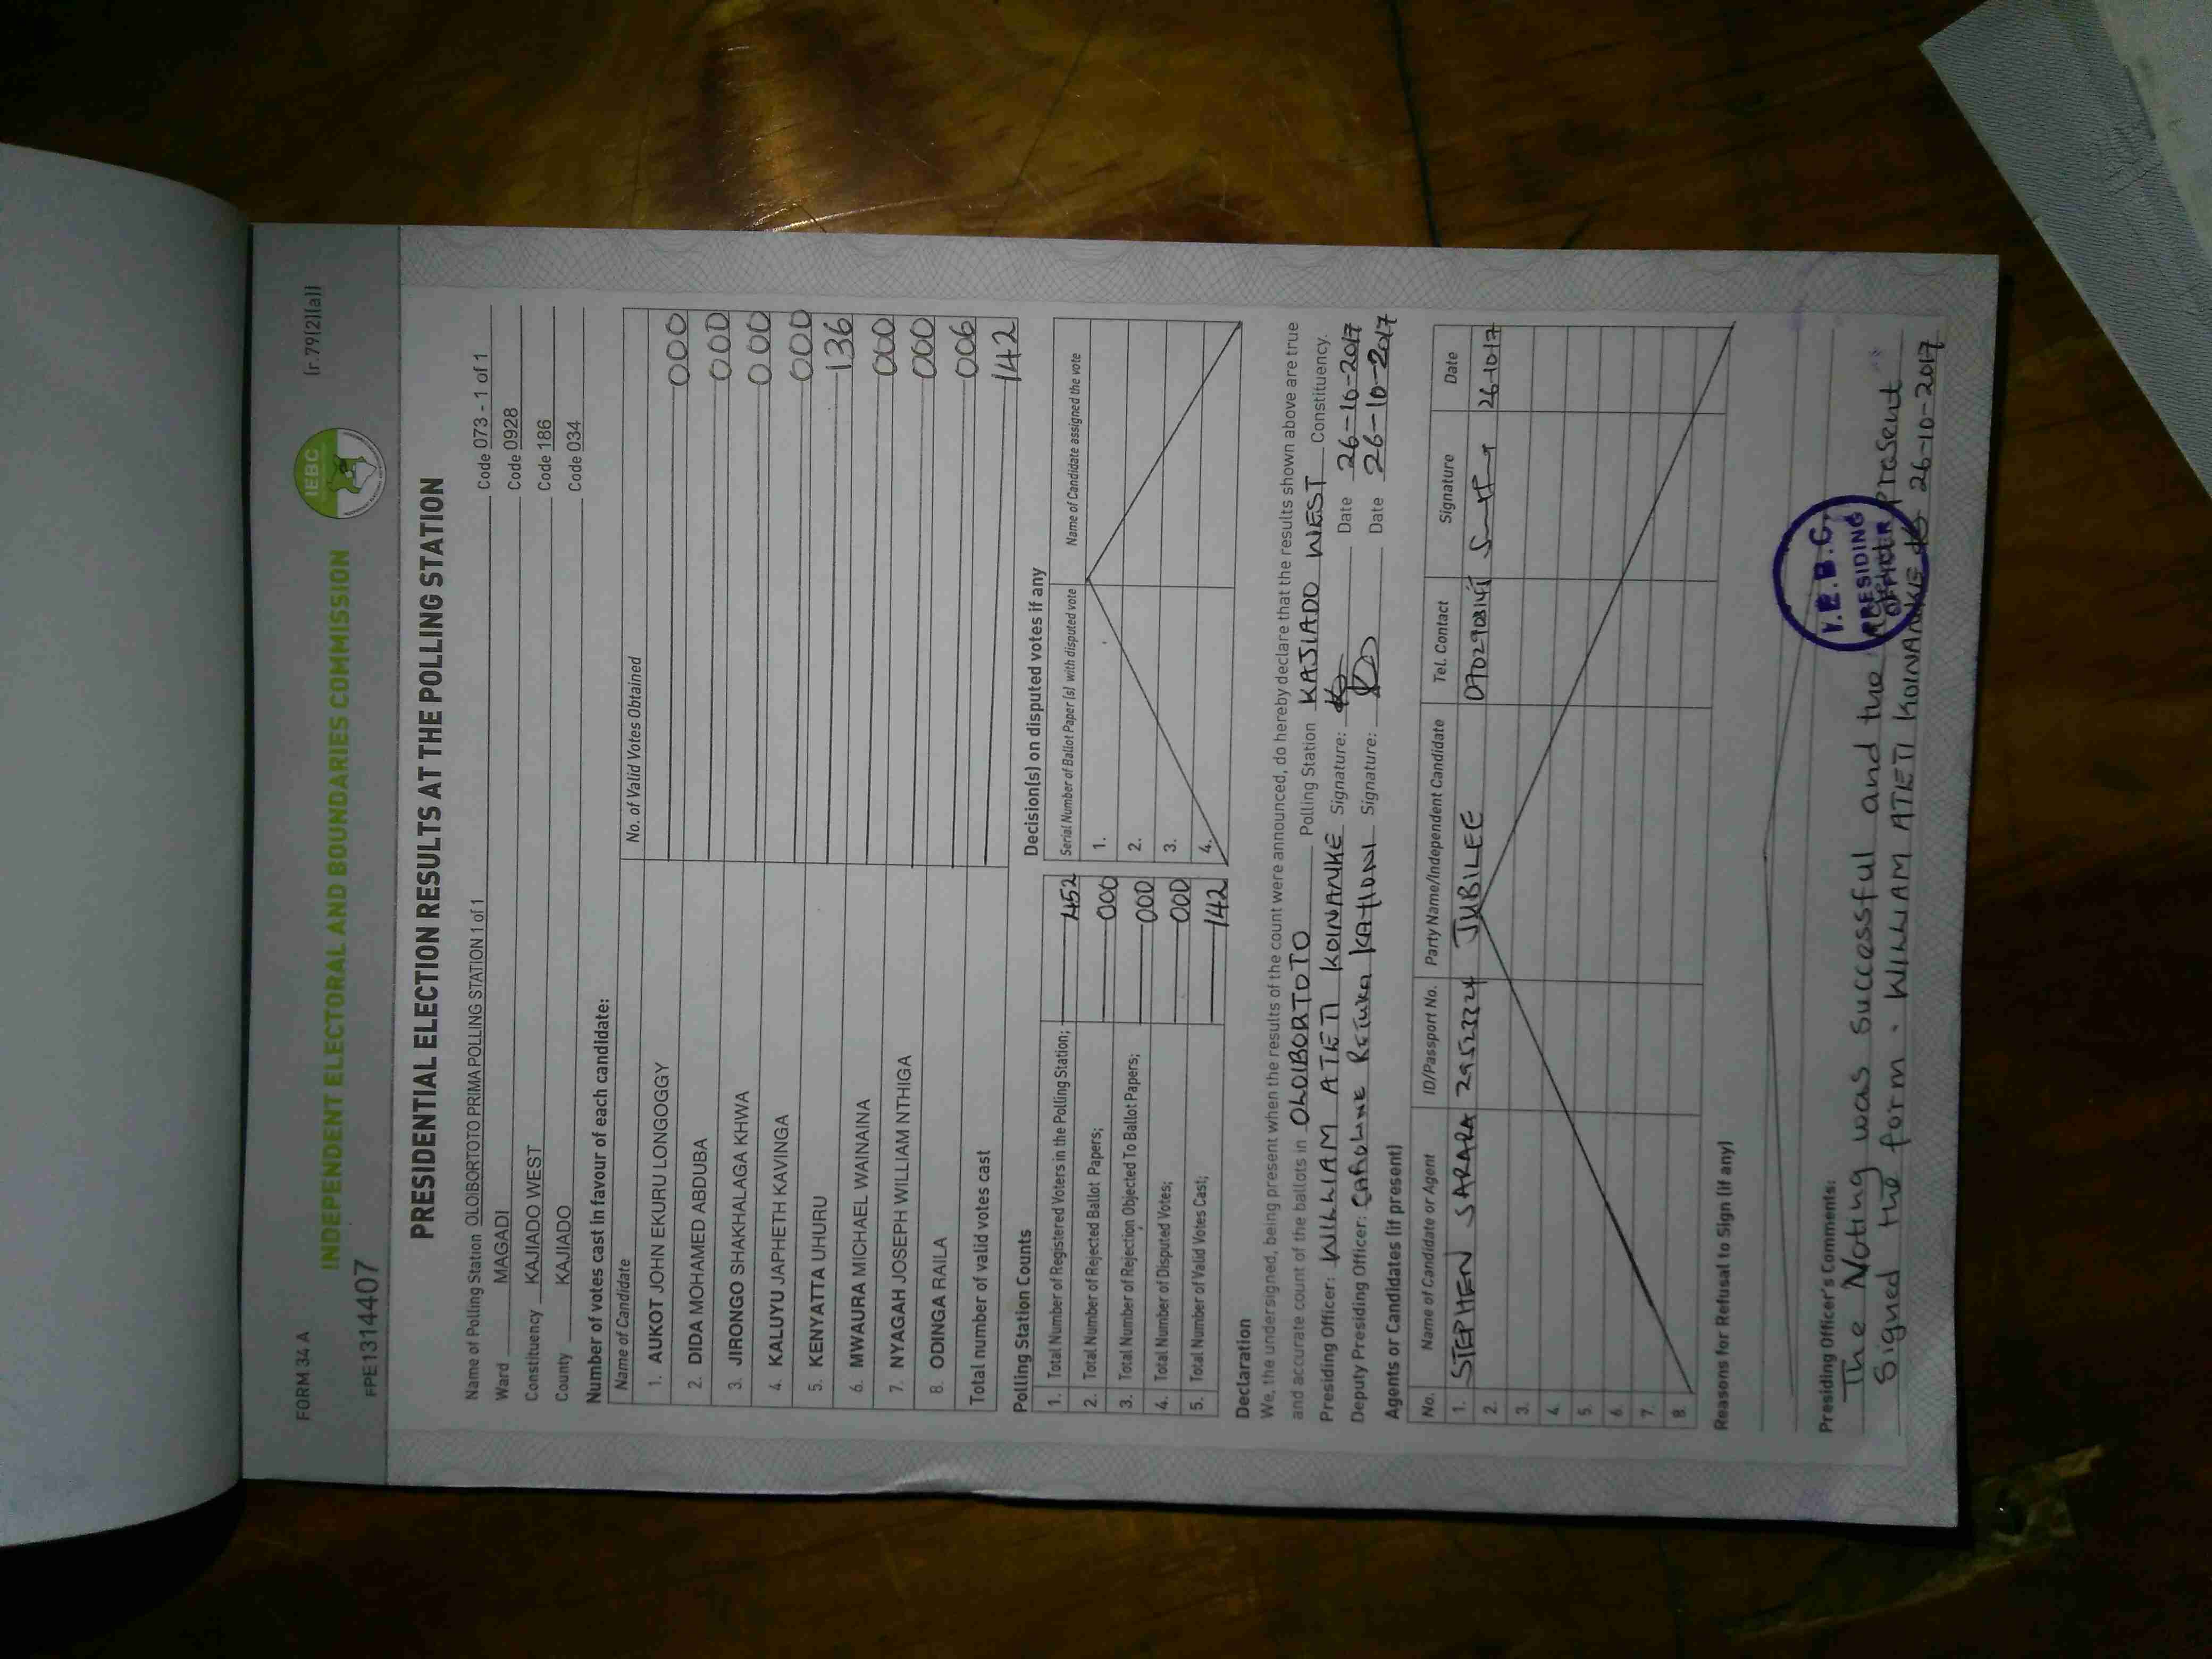 FORM 34 A
(r.79(2)(a))
FPE1314407
INDEPENDENT ELECTORAL AND BOUNDARIES COMMISSION
IEBC
PRESIDENTIAL ELECTION RESULTS AT THE POLLING STATION
Name of Polling Station OLOIBORTOTO PRIMA POLLING STATION 1 of 1 Code 073 - 1 of 1
Ward MAGADI Code 0928
Constituency KAJIADO WEST Code 186
County KAJIADO Code 034
Number of votes cast in favour of each candidate:
Name of Candidate No. of Valid Votes Obtained
1. AUKOT JOHN EKURU LONGOGGY 000
2. DIDA MOHAMED ABDUBA 000
3. JIRONGO SHAKHALAGA KHWA 000
4. KALUYU JAPHETH KAVINGA 000
5. KENYATTA UHURU 136
6. MWAURA MICHAEL WAINAINA 000
7. NYAGAH JOSEPH WILLIAM NTHIGA 000
8. ODINGA RAILA 006
Total number of valid votes cast 142
Polling Station Counts
1. Total Number of Registered Voters in the Polling Station; 452
2. Total Number of Rejected Ballot Papers; 000
3. Total Number of Rejection Objected To Ballot Papers; 000
4. Total Number of Disputed Votes; 000
5. Total Number of Valid Votes Cast; 142
Decision(s) on disputed votes if any
Serial Number of Ballot Paper (s) with disputed vote Name of Candidate assigned the vote
1.
2.
3.
4.
Declaration
We, the undersigned, being present when the results of the count were announced, do hereby declare that the results shown above are true
and accurate count of the ballots in OLOIBORTOTO Polling Station KAJIADO WEST Constituency.
Presiding Officer: WILLIAM ATETI KOINANKE Signature: Date 26-10-2017
Deputy Presiding Officer: CAROLINE Signature: Date 26-10-2017
Agents or Candidates (if present)
No. Name of Candidate or Agent ID/Passport No. Party Name/Independent Candidate Tel. Contact Signature Date
1. STEPHEN SARARA 29523324 JUBILEE 26-10-17
2.
3.
4.
5.
6.
7.
8.
Reasons for Refusal to Sign (if any)
Presiding Officer's Comments:
The Voting was Successful and the agent present
Signed the form. WILLIAM ATETI KOINANKE 26-10-2017
I.E.B.C.
PRESIDING
OFFICER